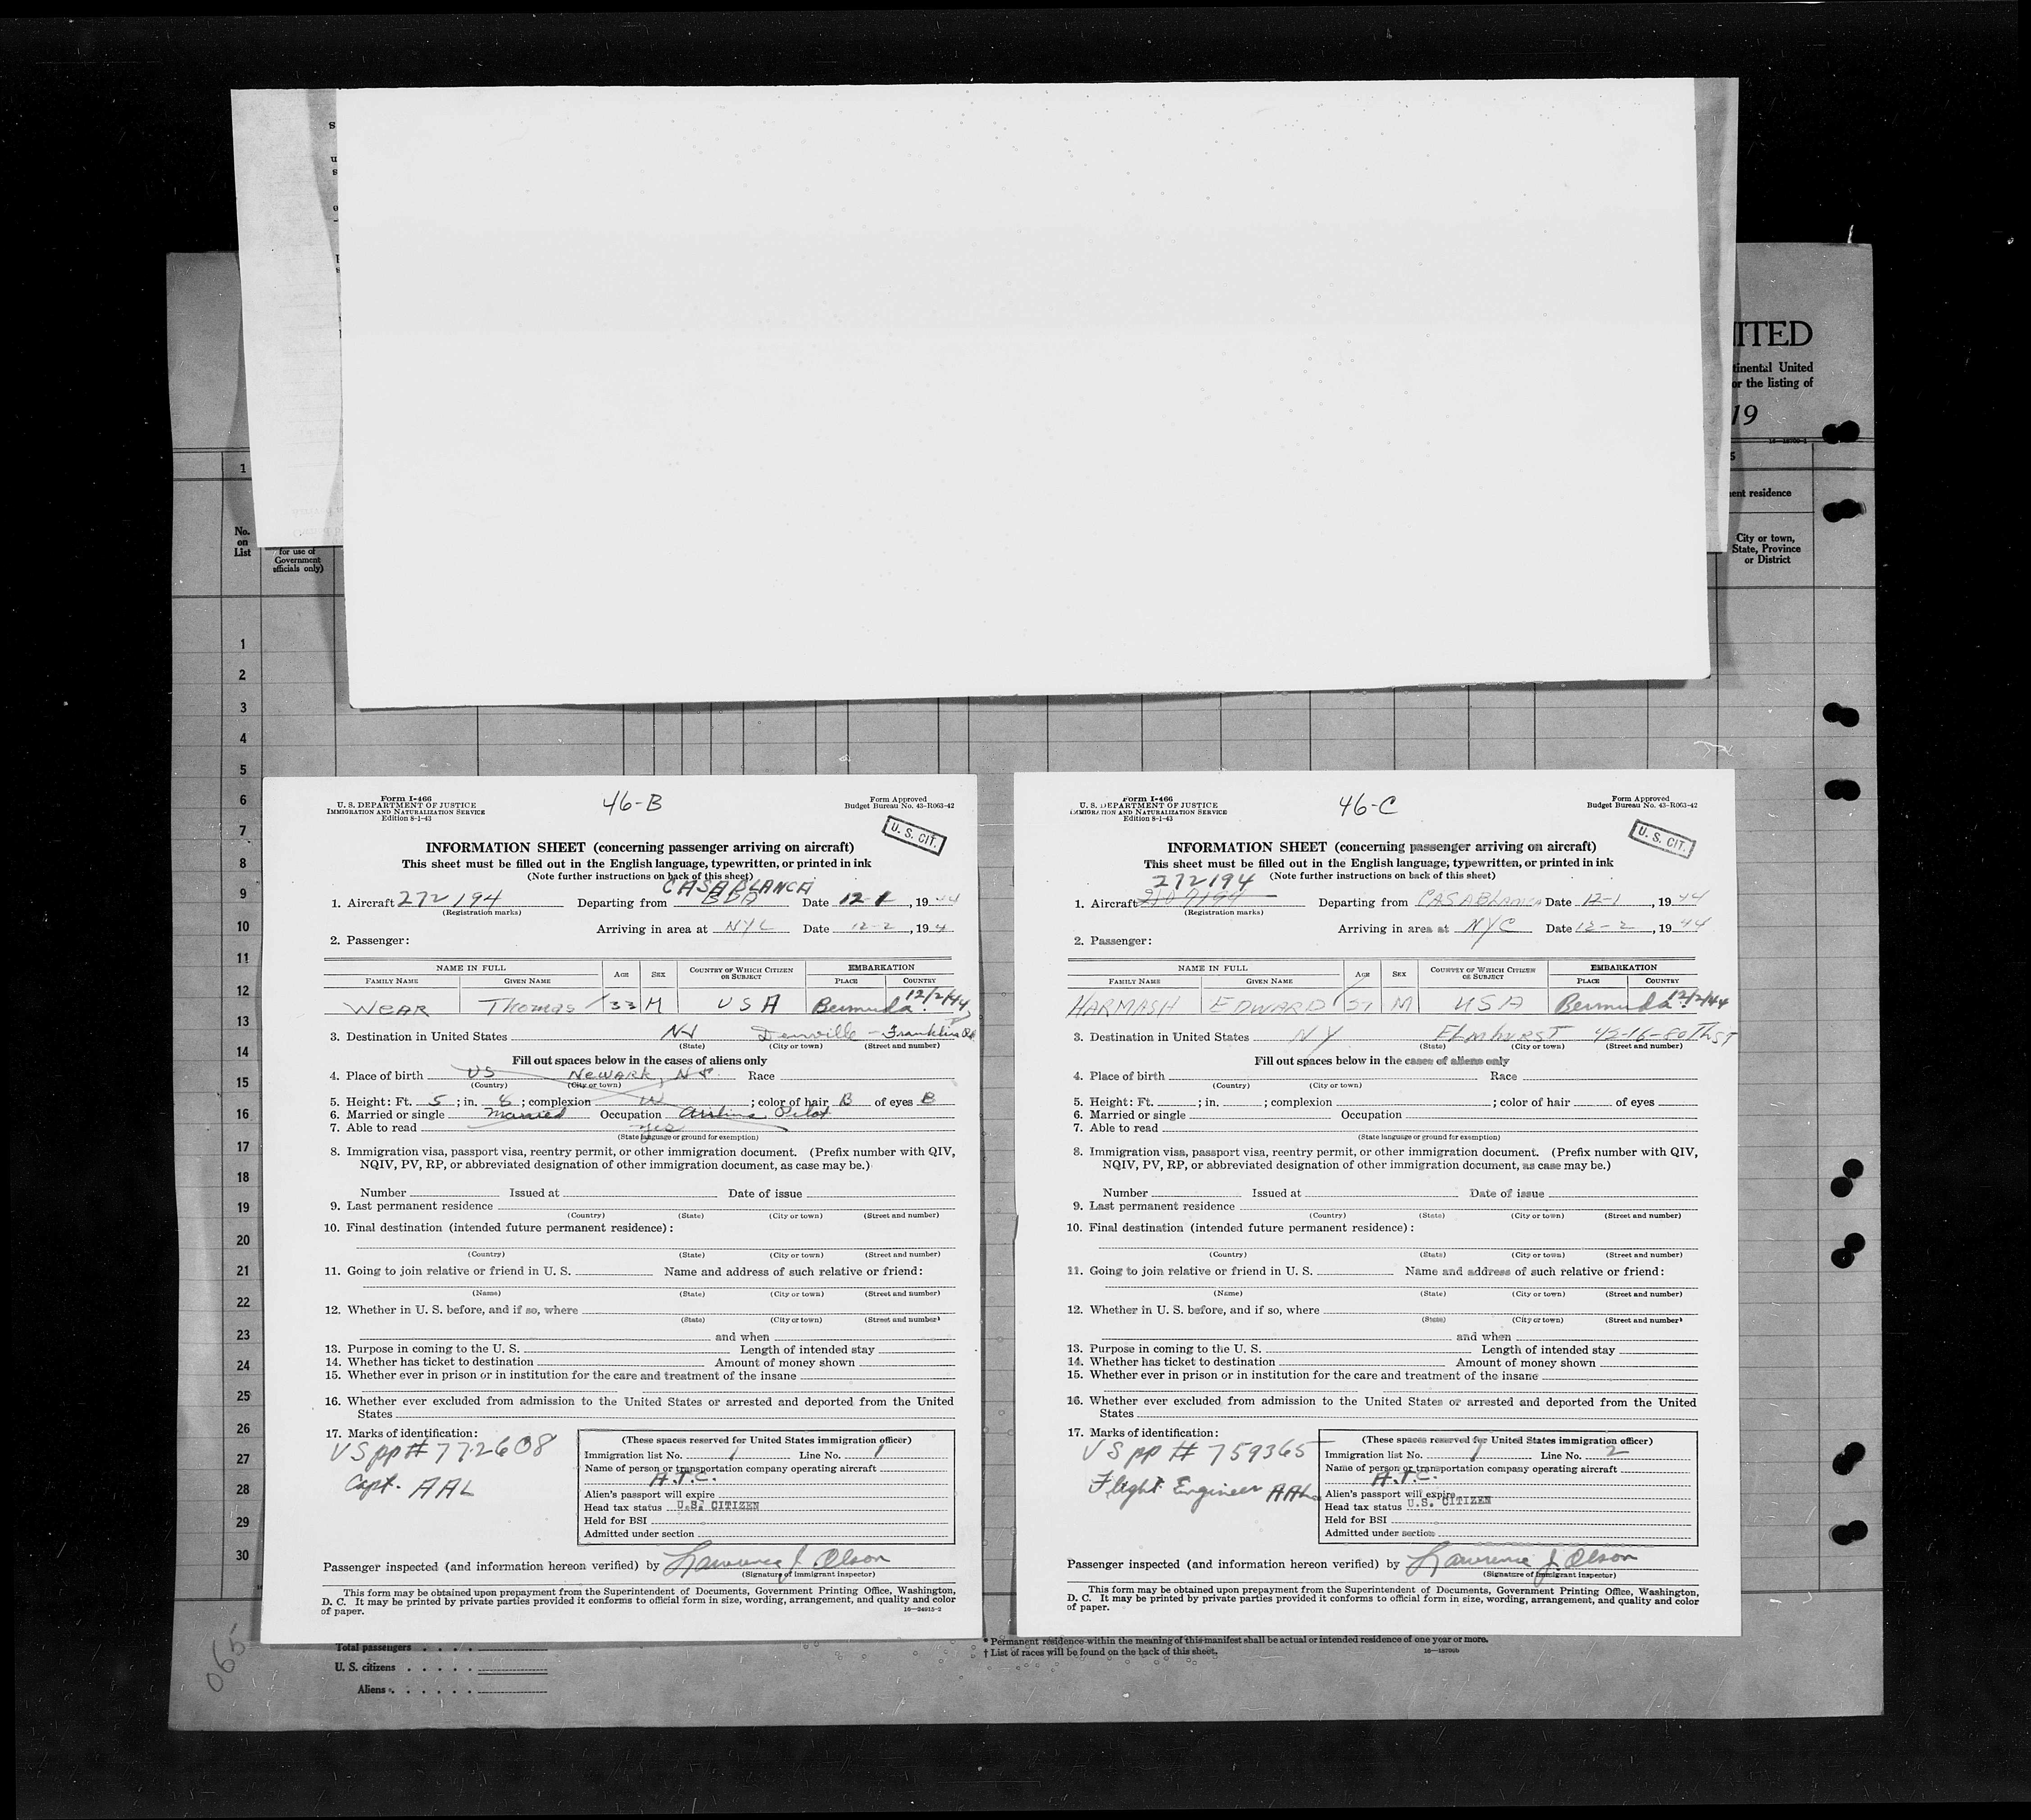 ITED
tinental United
or the listing of
19
1
No.
on
List
for use of
Government
officials only)
ent residence
City or town,
State, Province
or District
1
2
3
4
5
6
7
8
9
10
11
12
13
14
15
16
17
18
19
20
21
22
23
24
25
26
27
28
29
30
Form I-466
U. S. DEPARTMENT OF JUSTICE
IMMIGRATION AND NATURALIZATION SERVICE
Edition 8-1-43
46-B
Form Approved
Budget Bureau No. 43-R063-42
U. S. CIT.
INFORMATION SHEET (concerning passenger arriving on aircraft)
This sheet must be filled out in the English language, typewritten, or printed in ink
(Note further instructions on back of this sheet)
CASABLANCA
1. Aircraft 272194 Departing from BDA Date 12-1, 1944
(Registration marks)
Arriving in area at NYC Date 12-2, 194
2. Passenger:
NAME IN FULL AGE SEX COUNTRY OF WHICH CITIZEN OR SUBJECT EMBARKATION
FAMILY NAME GIVEN NAME PLACE COUNTRY
WEAR Thomas 33 M USA Bermuda 12/2/44
3. Destination in United States NJ Denville - Franklin Rd.
(State) (City or town) (Street and number)
Fill out spaces below in the cases of aliens only
4. Place of birth US Newark, NJ. Race
(Country) (City or town)
5. Height: Ft. 5; in. 8; complexion W; color of hair B of eyes B
6. Married or single Married Occupation Airline Pilot
7. Able to read yes
(State language or ground for exemption)
8. Immigration visa, passport visa, reentry permit, or other immigration document. (Prefix number with QIV,
NQIV, PV, RP, or abbreviated designation of other immigration document, as case may be.)
Number Issued at Date of issue
9. Last permanent residence
(Country) (State) (City or town) (Street and number)
10. Final destination (intended future permanent residence):
(Country) (State) (City or town) (Street and number)
11. Going to join relative or friend in U. S. Name and address of such relative or friend:
(Name) (State) (City or town) (Street and number)
12. Whether in U. S. before, and if so, where
(State) (City or town) (Street and number)
and when
13. Purpose in coming to the U. S. Length of intended stay
14. Whether has ticket to destination Amount of money shown
15. Whether ever in prison or in institution for the care and treatment of the insane
16. Whether ever excluded from admission to the United States or arrested and deported from the United
States
17. Marks of identification:
US pp # 772608
Capt. AAL
(These spaces reserved for United States immigration officer)
Immigration list No. 1 Line No. 1
Name of person or transportation company operating aircraft
A.T.C.
Alien's passport will expire
Head tax status U.S. CITIZEN
Held for BSI
Admitted under section
Passenger inspected (and information hereon verified) by Lawrence J. Olson
(Signature of immigrant inspector)
This form may be obtained upon prepayment from the Superintendent of Documents, Government Printing Office, Washington,
D. C. It may be printed by private parties provided it conforms to official form in size, wording, arrangement, and quality and color
of paper.
16—24915-2
Form I-466
U. S. DEPARTMENT OF JUSTICE
IMMIGRATION AND NATURALIZATION SERVICE
Edition 8-1-43
46-C
Form Approved
Budget Bureau No. 43-R063-42
U. S. CIT.
INFORMATION SHEET (concerning passenger arriving on aircraft)
This sheet must be filled out in the English language, typewritten, or printed in ink
272194 (Note further instructions on back of this sheet)
1. Aircraft Departing from CASABLANCA Date 12-1, 1944
(Registration marks)
Arriving in area at NYC Date 12-2, 1944
2. Passenger:
NAME IN FULL AGE SEX COUNTRY OF WHICH CITIZEN OR SUBJECT EMBARKATION
FAMILY NAME GIVEN NAME PLACE COUNTRY
HARMASH EDWARD 37 M USA Bermuda 12/2/44
3. Destination in United States NY Elmhurst 45-16-80Th ST
(State) (City or town) (Street and number)
Fill out spaces below in the cases of aliens only
4. Place of birth Race
(Country) (City or town)
5. Height: Ft. ; in. ; complexion ; color of hair of eyes
6. Married or single Occupation
7. Able to read
(State language or ground for exemption)
8. Immigration visa, passport visa, reentry permit, or other immigration document. (Prefix number with QIV,
NQIV, PV, RP, or abbreviated designation of other immigration document, as case may be.)
Number Issued at Date of issue
9. Last permanent residence
(Country) (State) (City or town) (Street and number)
10. Final destination (intended future permanent residence):
(Country) (State) (City or town) (Street and number)
11. Going to join relative or friend in U. S. Name and address of such relative or friend:
(Name) (State) (City or town) (Street and number)
12. Whether in U. S. before, and if so, where
(State) (City or town) (Street and number)
and when
13. Purpose in coming to the U. S. Length of intended stay
14. Whether has ticket to destination Amount of money shown
15. Whether ever in prison or in institution for the care and treatment of the insane
16. Whether ever excluded from admission to the United States or arrested and deported from the United
States
17. Marks of identification:
US pp # 759365
Flight Engineer AAL
(These spaces reserved for United States immigration officer)
Immigration list No. 1 Line No. 2
Name of person or transportation company operating aircraft
A.T.C.
Alien's passport will expire
Head tax status U.S. CITIZEN
Held for BSI
Admitted under section
Passenger inspected (and information hereon verified) by Lawrence J. Olson
(Signature of immigrant inspector)
This form may be obtained upon prepayment from the Superintendent of Documents, Government Printing Office, Washington,
D. C. It may be printed by private parties provided it conforms to official form in size, wording, arrangement, and quality and color
of paper.
065
Total passengers
U. S. citizens
Aliens
* Permanent residence within the meaning of this manifest shall be actual or intended residence of one year or more.
† List of races will be found on the back of this sheet.